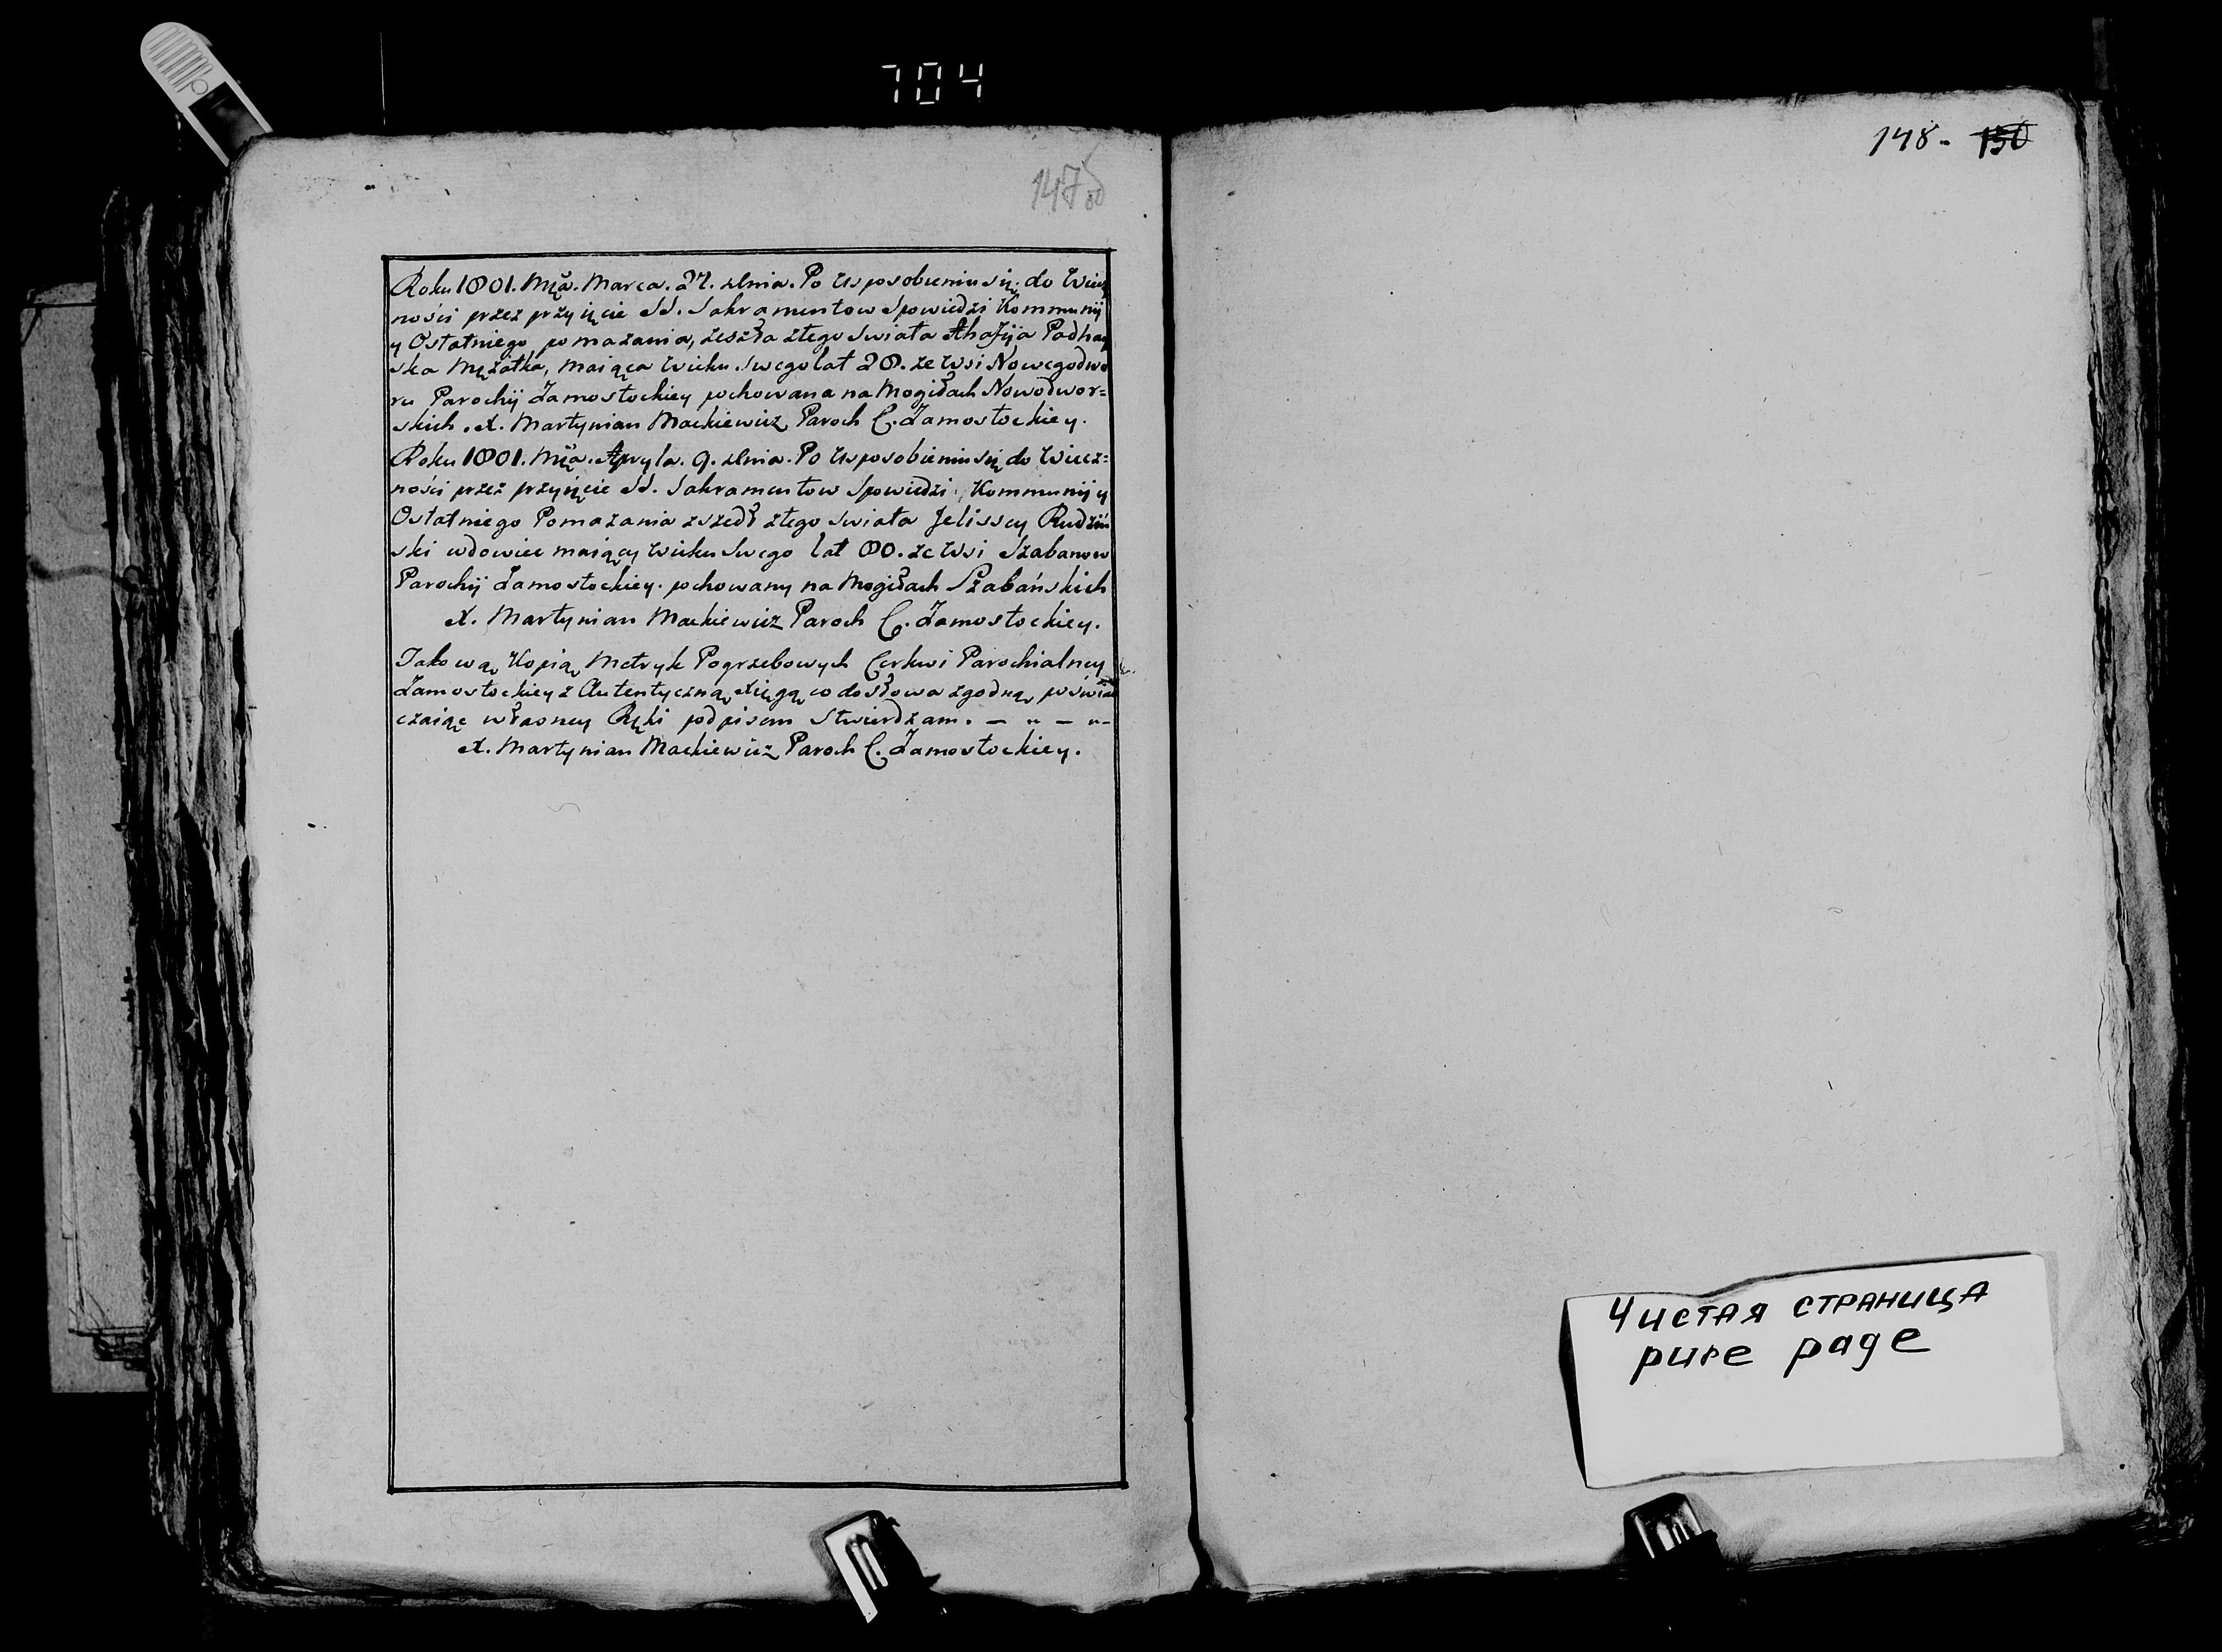 704
147об
148. 150
Roku 1801. Mца. Marca. 27. dnia. Po Usposobieniu się do Wiecz
ności przez przyięcie SS. Sakramentow Spowiedzi Kommunij
y Ostatniego pomazania, zeszła ztego Swiata Ahafija Podhay
ska Mężatka, maiąca Wieku Swego lat 28. ze Wsi Nowegodwo
ru Parochij Zamostockiey pochowana na Mogiłach Nowodwor=
skich. X. Martynian Mackiewicz Paroch C. Zamostockiey.
Roku 1801. Mца. Apryla. 9. dnia. Po Usposobieniu się do Wiecz=
ności przez przyięcie SS. Sakramentow Spowiedzi, Kommunij y
Ostatniego Pomazania zszedł ztego Swiata Jelissey Rudziń
ski wdowiec maiący Wieku Swego lat 80. ze Wsi Szabanow
Parochij Zamostockiey. pochowany na Mogiłach Szabańskich
X. Martynian Mackiewicz Paroch C. Zamostockiey.
Takową Kopią Metryk Pogrzebowych Cerkwi Parochialney
Zamostockiey z Autentyczną Xięgą co do słowa zgodną, poświad
czaiąc własney Ręki podpisem Stwierdzam. — " — "-
X. Martynian Mackiewicz Paroch C. Zamostockiey.
Чистая страница
pure page